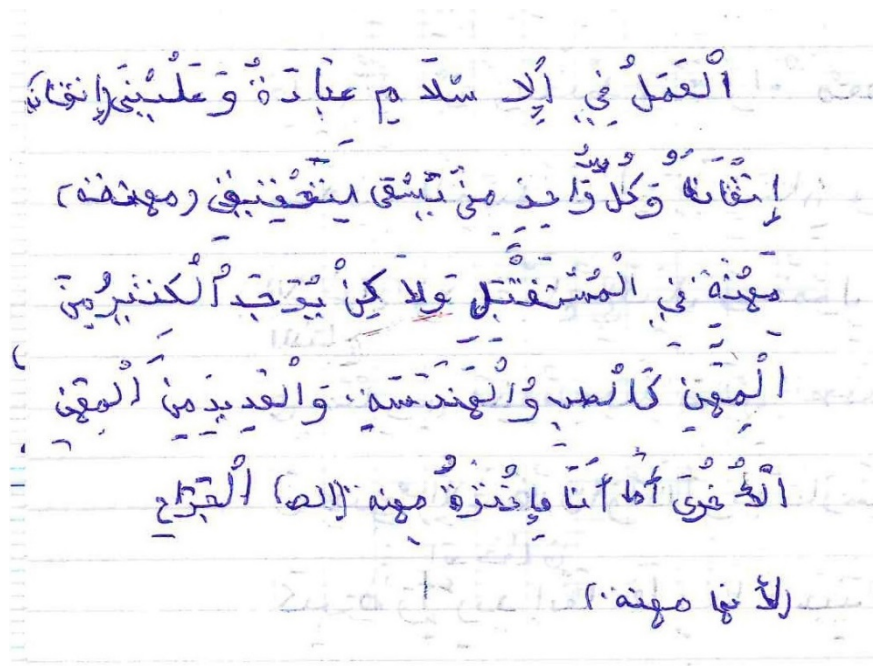 اَلْعَمَلُ فِي اَلاِ سْلَا مِ عِبَا دَةٌ وَ عَلَيْنَا (إتقان
إِتْقَانُهُ وَكُلُّ وَا حِدٍ مِنَّ (مهنته)
مِهْنَةٌ فِي الْمُسْتَقْبَلِ وَلا كِنْ يُوْجَدُ اَلْكَثِيرُ مِنَ
الْمِهَنِ كَالْطِبِ وَالْهَنْدَسَةِ. وَالْعَدِيدِ مِنَ الْمِهَنِ
الْأُ خْرَى أَمَّا أَنَا مِهنة (الط) الْجَرَّاحِ
(لأ نها مهنة.)